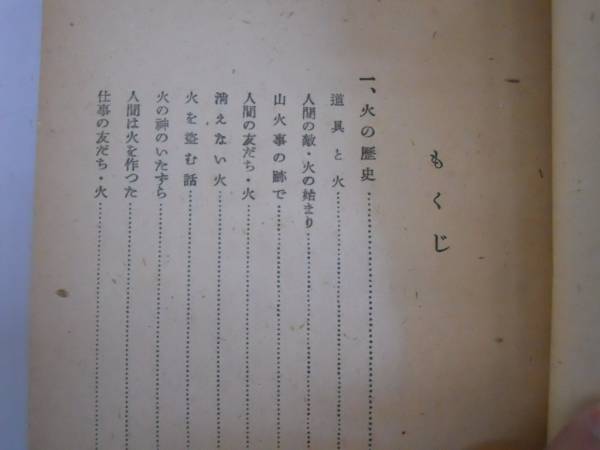 もくじ
一、火の歴史
道具と火
人間の敵・火の始まり
山火事の跡で
人間の友だち・火
消えない火
火を盗む話
火の神のいたずら
人間は火を作つた
仕事の友だち・火